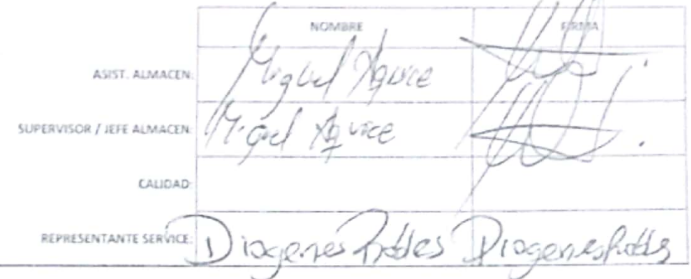 NOMBRE FIRMA
ASIST. ALMACEN: Miguel Aquice
SUPERVISOR / JEFE ALMACEN: Miguel Aquice
CALIDAD:
REPRESENTANTE SERVICE: Diogenes Diogenes